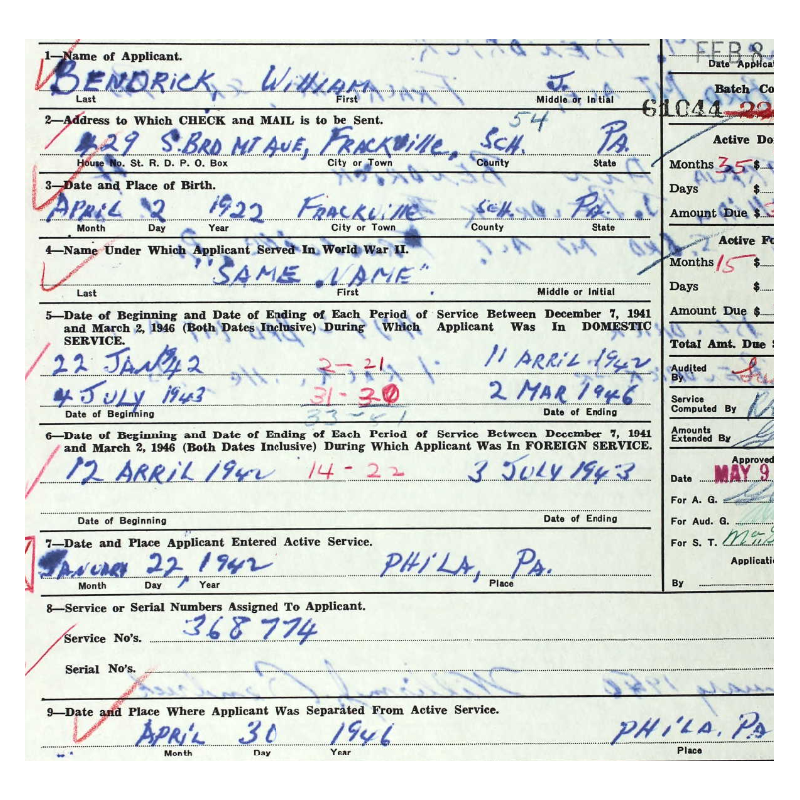 1—Name of Applicant.
BENDRICK, WILLIAM J.
Last First Middle or Initial
2—Address to Which CHECK and MAIL is to be Sent.
54
429 S. BRD MT AVE, FRACKVILLE, SCH. PA.
House No. St. R. D. P. O. Box City or Town County State
3—Date and Place of Birth.
APRIL 2 1922 FRACKVILLE SCH. PA.
Month Day Year City or Town County State
4—Name Under Which Applicant Served In World War II.
"SAME NAME"
Last First Middle or Initial
5—Date of Beginning and Date of Ending of Each Period of Service Between December 7, 1941
and March 2, 1946 (Both Dates Inclusive) During Which Applicant Was In DOMESTIC
SERVICE.
22 JAN 1942 2-21 11 APRIL 1942
4 JULY 1943 31-30 2 MAR 1946
Date of Beginning 33-51 Date of Ending
6—Date of Beginning and Date of Ending of Each Period of Service Between December 7, 1941
and March 2, 1946 (Both Dates Inclusive) During Which Applicant Was In FOREIGN SERVICE.
12 APRIL 1942 14-22 3 JULY 1943
Date of Beginning Date of Ending
7—Date and Place Applicant Entered Active Service.
JANUARY 22, 1942 PHILA, PA.
Month Day Year Place
8—Service or Serial Numbers Assigned To Applicant.
Service No's. 368 774
Serial No's.
9—Date and Place Where Applicant Was Separated From Active Service.
APRIL 30 1946 PHILA. PA
Month Day Year Place
FEB 8
Date Applica
Batch Co
61044 22
Active Do
Months 35 $
Days $
Amount Due $
Active Fo
Months 15 $
Days $
Amount Due $
Total Amt. Due $
Audited
By
Service
Computed By
Amounts
Extended By
Approved
Date MAY 9
For A. G.
For Aud. G.
For S. T.
Applicati
By